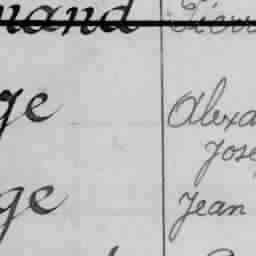 uand Pierr
ge Alexa
Jose
ge Jean